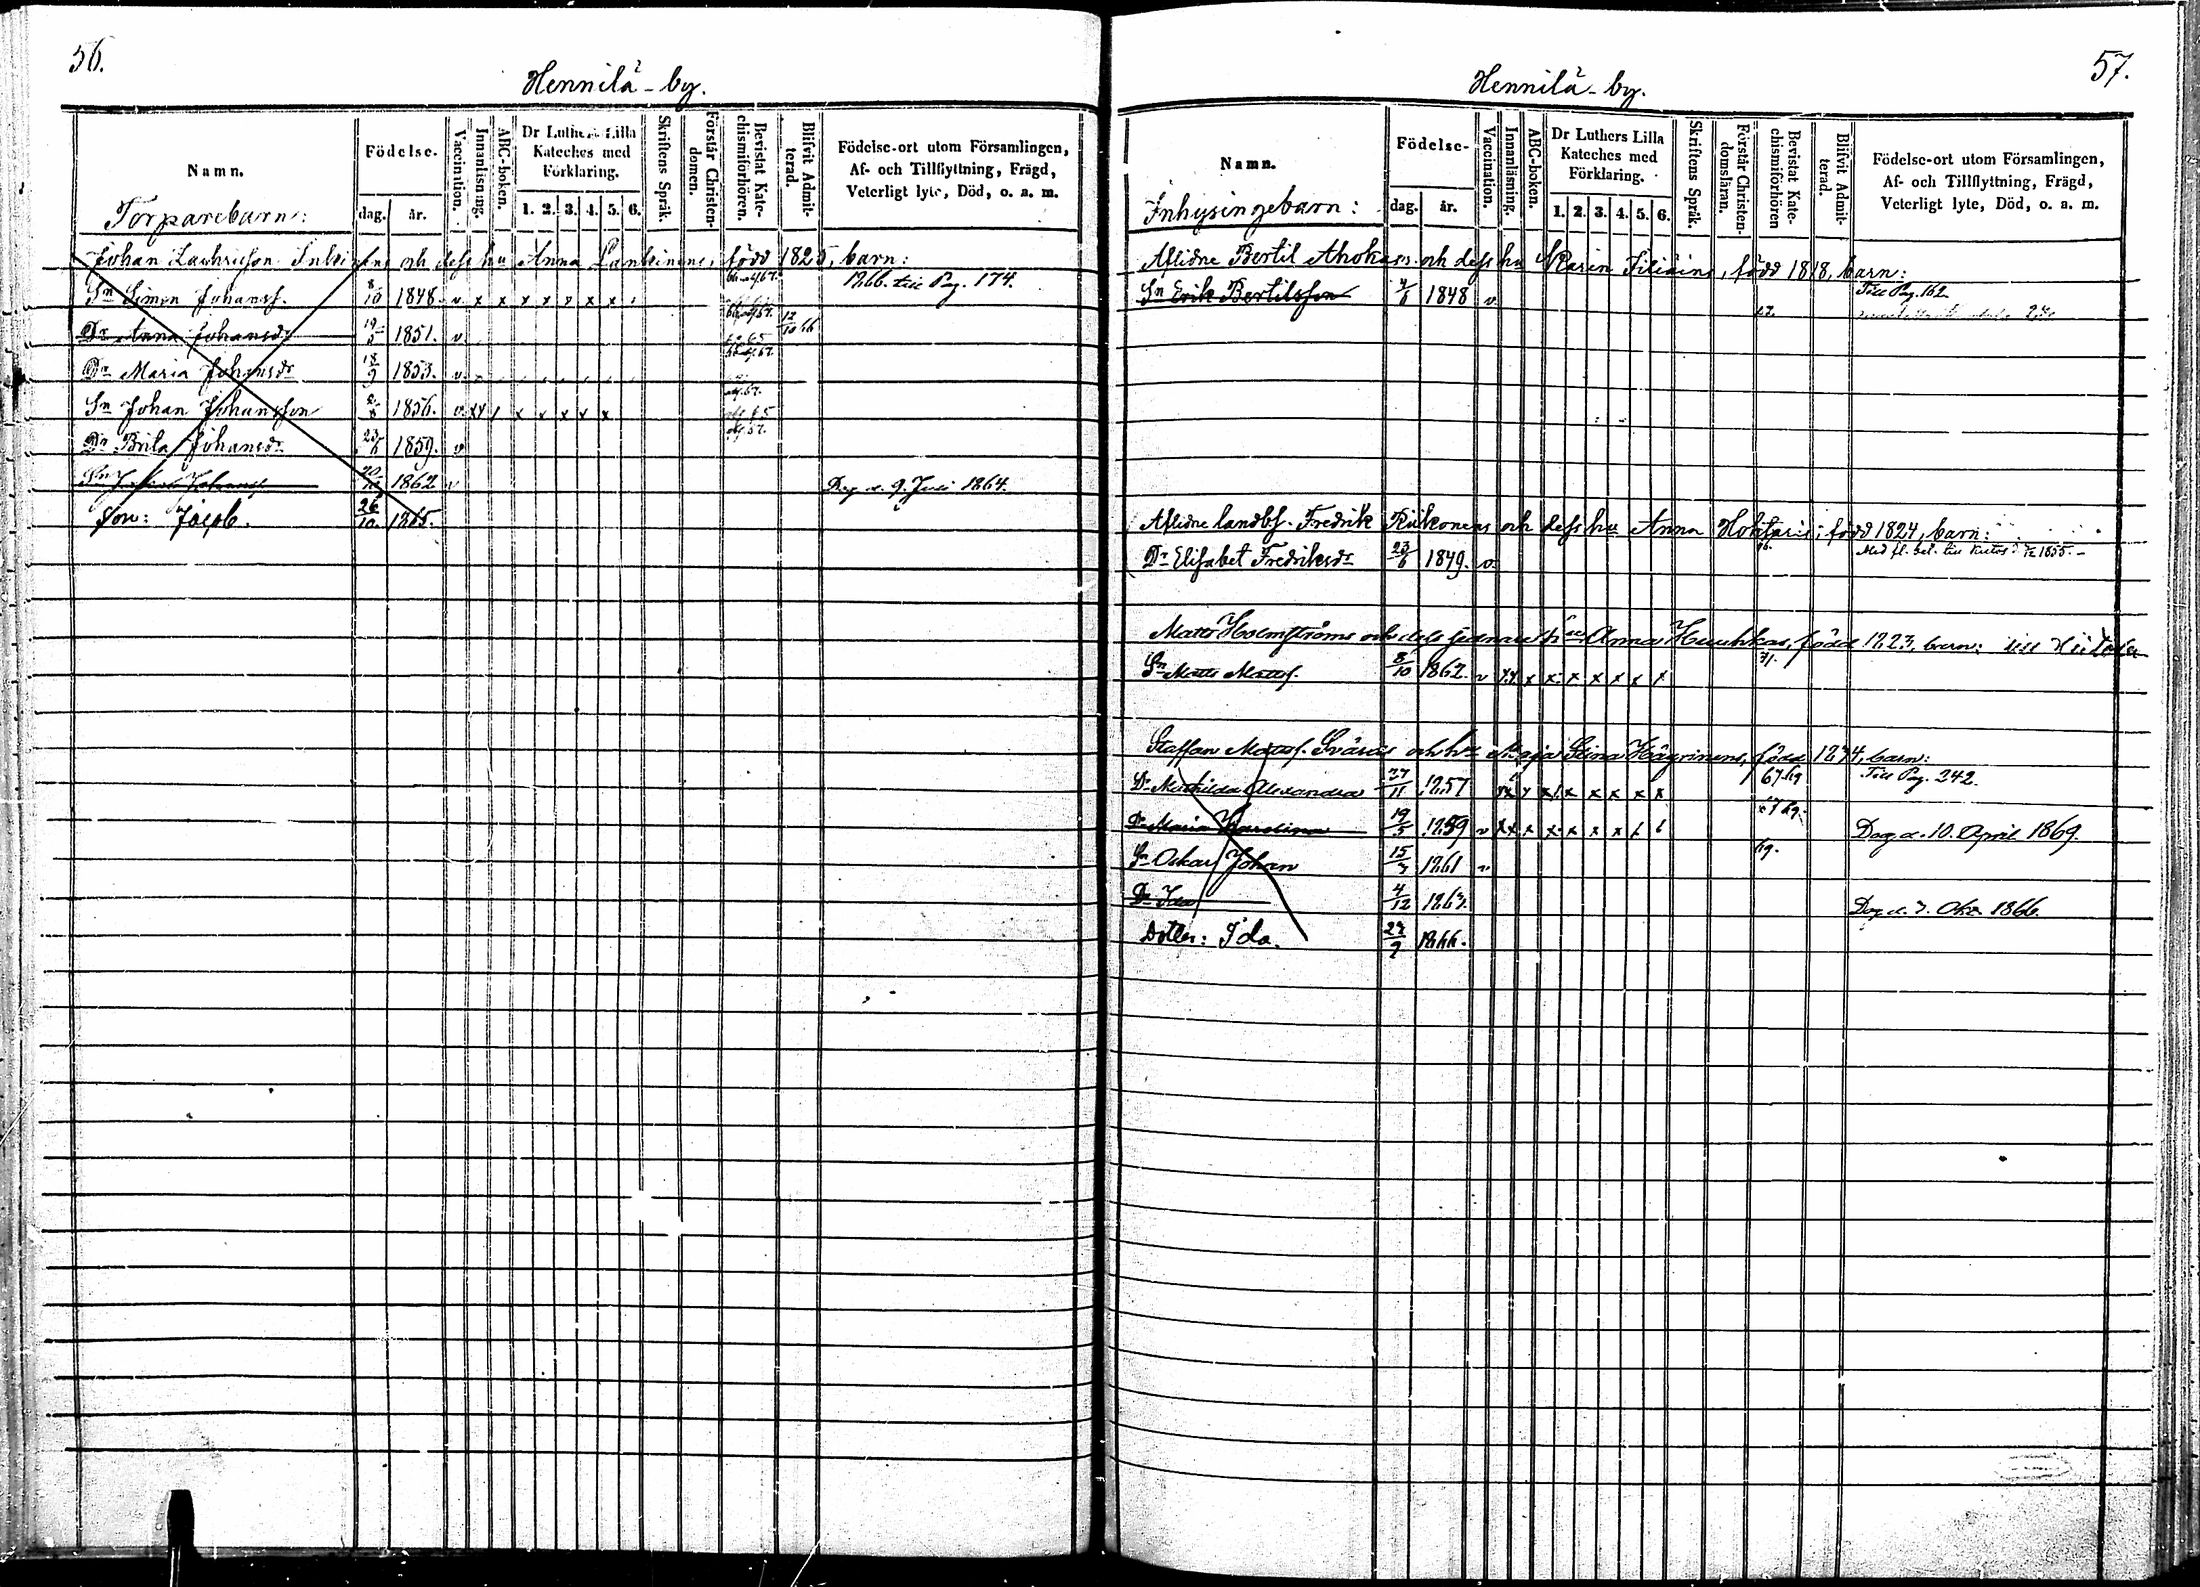 56.
Hennilä - by.
Namn.
Födelse-
dag.
år.
Vaccination.
Innanläsning.
ABC-boken.
Dr Luthers Lilla
Kateches med
Förklaring.
1. 2. 3. 4. 5. 6.
Skriftens Språk.
Förstår Christen-
domen.
Bevistat Kate-
chismiförhören.
Blifvit Admit-
terad.
Födelse-ort utom Församlingen,
Af- och Tillflyttning, Frägd,
Veterligt lyte, Död, o. a. m.
Torparebarn:
Johan och dess hu Anna född 1825, barn:
Sn Simon Johanss. 8/10 1848. v. x x x x x x x 1866 till Pag. 174.
Dr Anna Johansdr 19/5 1851. v. 12/10 66
Dr Maria Johansdr 18/9 1853. v.
Sn Johan Johansson 1856. v. x x x x x x
Dr Brita Johansdr 23/6 1859. v
Sn Johanss 20/10 1862 v Dog d. 9. Juli 1864.
Son: Jacob. 26/10 1865.
57.
Hennilä - by.
Namn.
Födelse-
dag.
år.
Vaccination.
Innanläsning.
ABC-boken.
Dr Luthers Lilla
Kateches med
Förklaring.
1. 2. 3. 4. 5. 6.
Skriftens Språk.
Förstår Christen-
domsläran.
Bevistat Kate-
chismiförhören
Blifvit Admit-
terad.
Födelse-ort utom Församlingen,
Af- och Tillflyttning, Frägd,
Veterligt lyte, Död, o. a. m.
Inhysingebarn:
Aflidne Bertil Ahokas och dess hu Karin född 1818, barn:
Sn Erik Bertilsson 1848 v. Till Pag. 162.
Aflidne landbf. Fredrik Riikonens och dess hu Anna född 1824, barn:
Dr Elisabet Fredriksdr 23/6 1849. v. 1855.
Matts Holmströms och dess sednare hu Anna Huuhkas, född 1823, barn: till Hiitola
Sn Matts Mattss. 8/10 1862. v x x x x x x x x 71.
Staffan Mattss. Svärds och hu Maja Stina född 1834, barn:
Dr Mathilda Alexandra 27/11 1857 x x x x x x x x 67.69 Till Pag. 242.
Dr Maria Karolina 19/5 1859 v x x x x x x 67 69. Dog d. 10. April 1869.
Sn Oskar Johan 15/3 1861 v 69.
Dr Ida 4/12 1863. Dog d. 3. Okt. 1866.
Dotter: Ida. 1866.